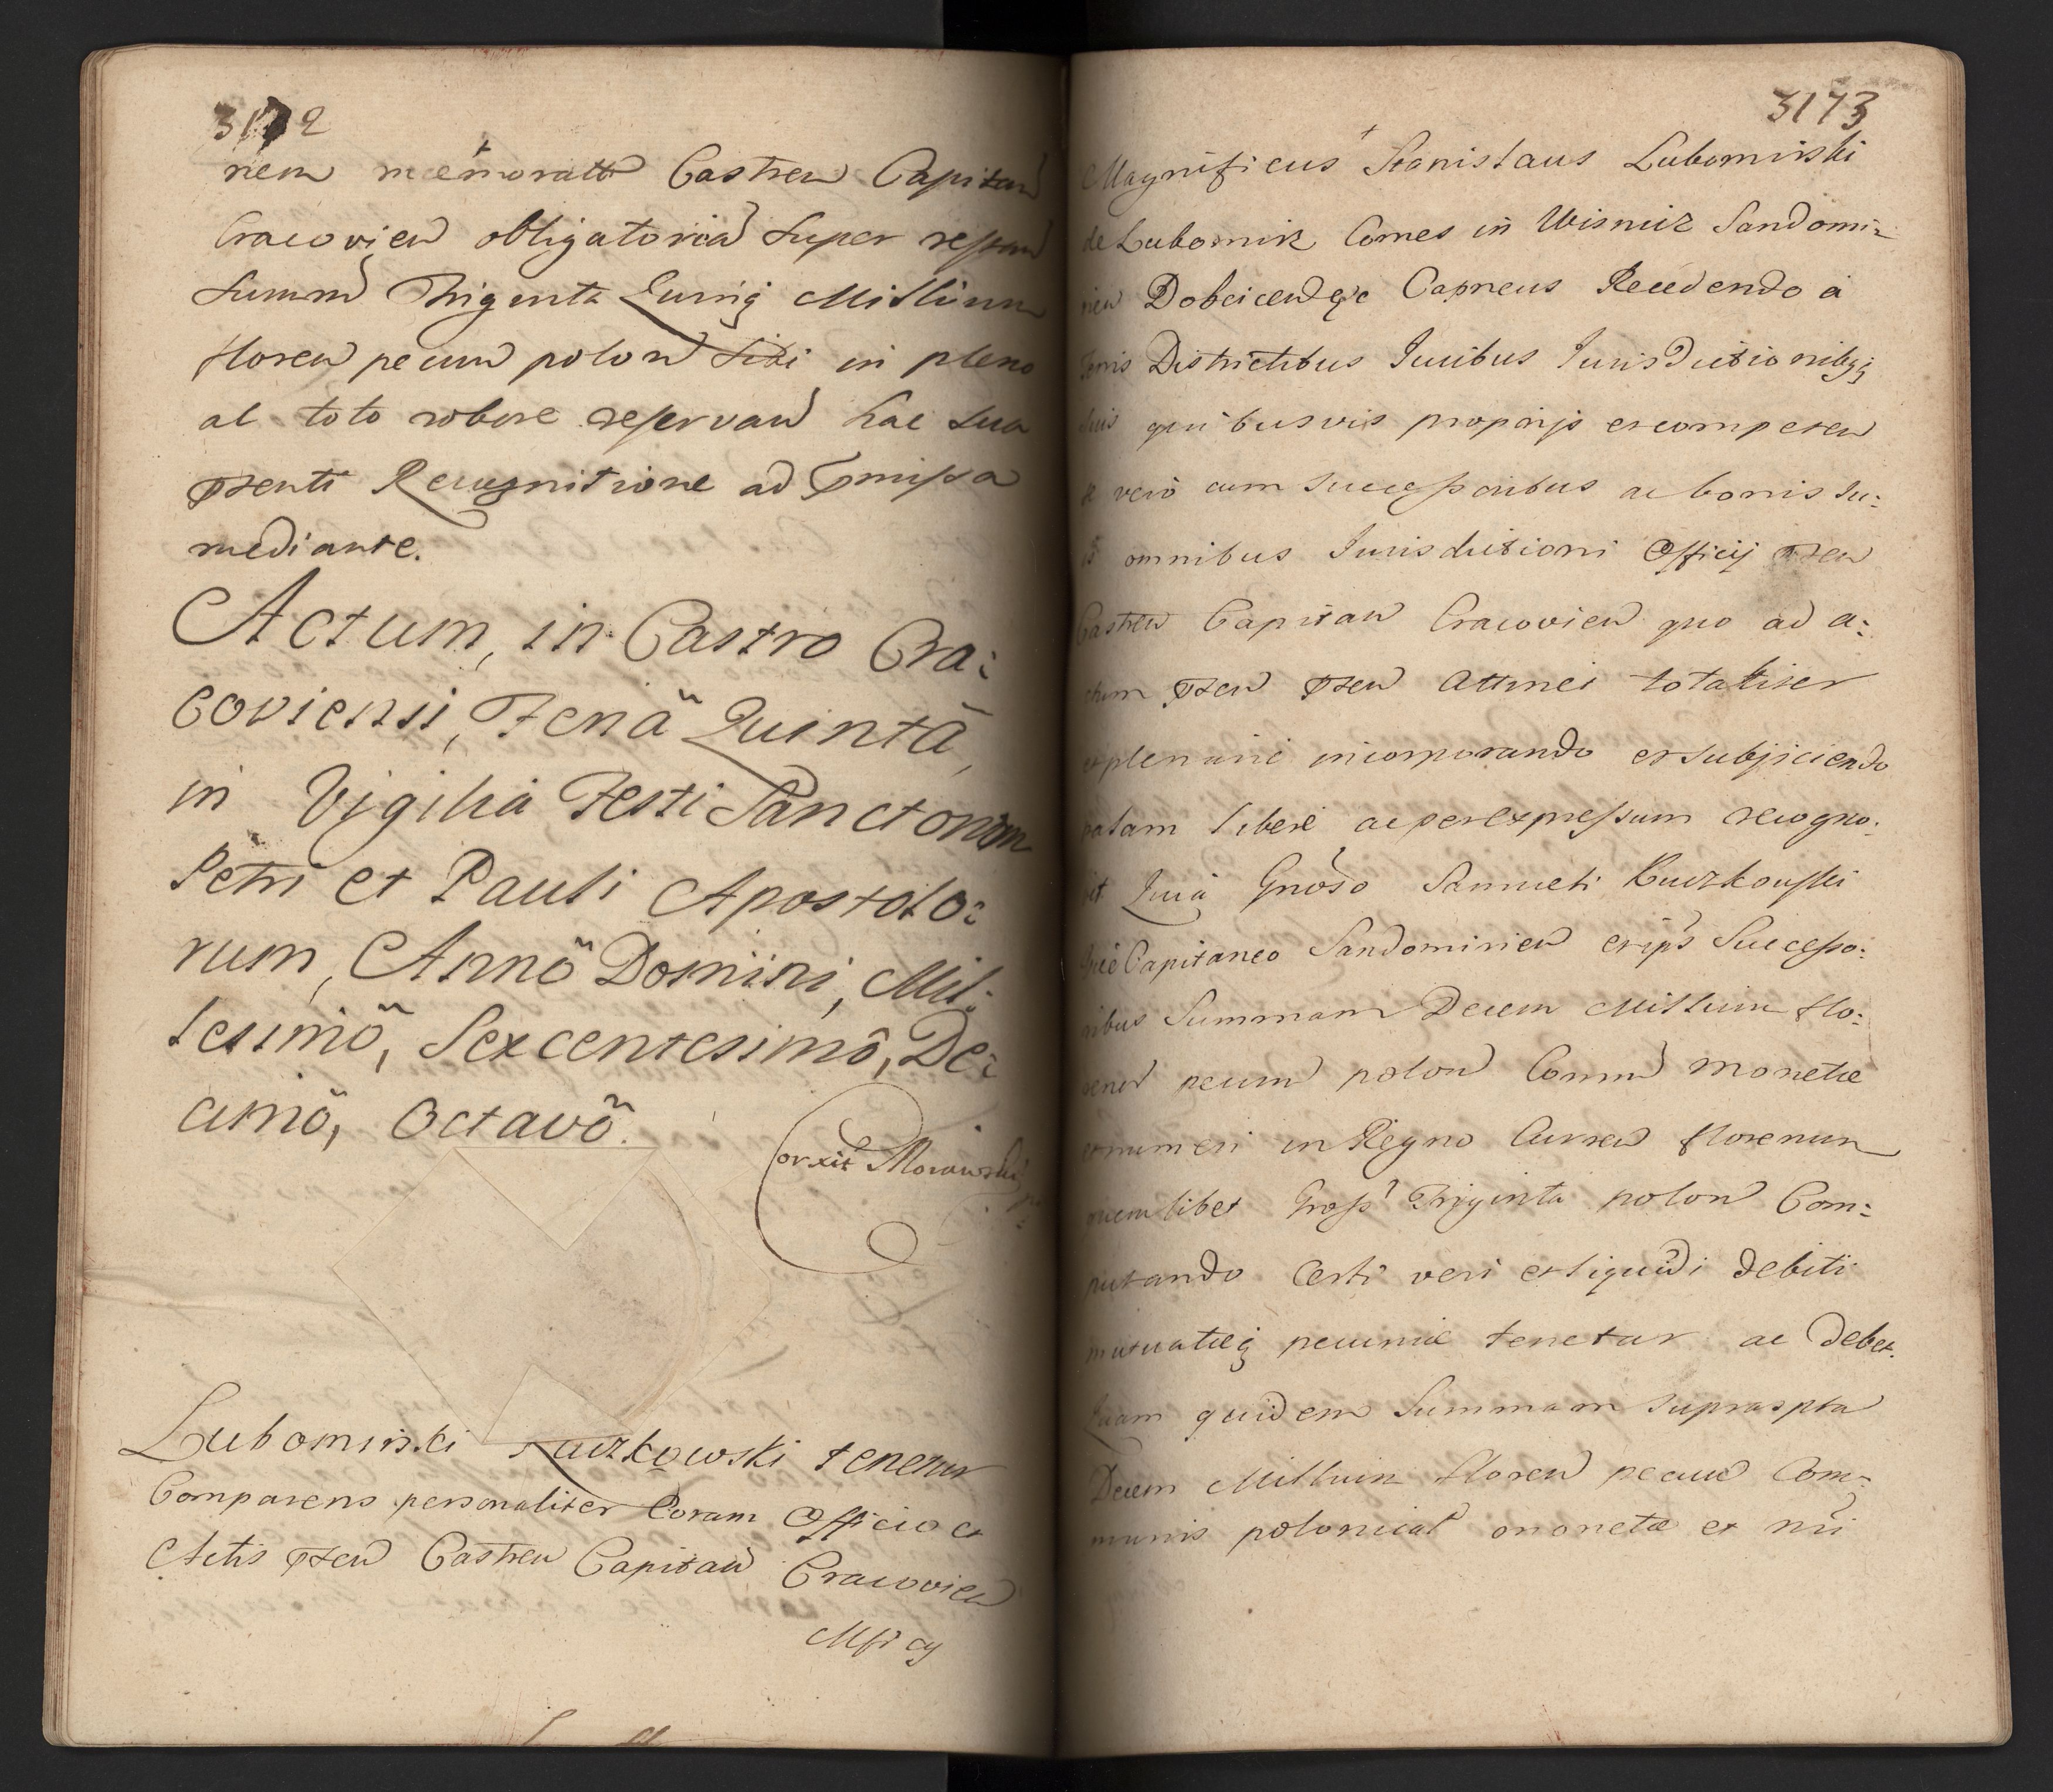 3172
nem memoratt Castren Capitan
Cracovien obligatoria super restan
Summa Triginta Quinq Millium
floren pecun polon sibi in pleno
al toto robore reservan hac sua
pnti Recognitione ad pmissa
mediante.
Actum, in Castro Cra:
coviensi, Feriâ Quintâ,
in Vigiliâ Festi Sanctorum
Petri et Pauli Apostolo:
rum, Annô Domini, Mil:
lesimô, Sexcentesimô, De:
cimô, Octavô.
Corxit Morawski
Lubomirski Kuczkowski tenetur
Comparens personaliter Coram Officio et
Actis pnten Castren Capitan Cracovien
Mfi cg
3173
Magnificus Stanislaus Lubomirski
de Lubomirz Comes in Wisnicz Sandomi:
rien Dobcicenqe Capneus Recedendo à
Terris Districtibus Iuribus Iurisdictionibqz
suis quibusvis proprijs et competen
se vero cum Successoribus ac bonis su:
is omnibus Iurisdictioni Officij pnten
Castren Capitan Cracovien quo ad a:
ctum pnten pnten attinet totaliter
et plenarie incorporando et subjiciendo
palam libere ac per expressum recogno:
vit Quia Gnoso Samueli Kuczkowski
Vice Capitaneo Sandomirien et ips Successo:
ribus Summam Decem Millium flo:
renor pecun polon Comm monetæ
et numeri in Regno Curren florenum
quemlibet Gross Triginta polon Com:
putando Certi veri et liquidi debiti
mutuatæq pecuniæ tenetur ac debet.
Quam quidem Summam supraspta
Decem Millium floren pecun Com:
munis polonical monetæ et nri